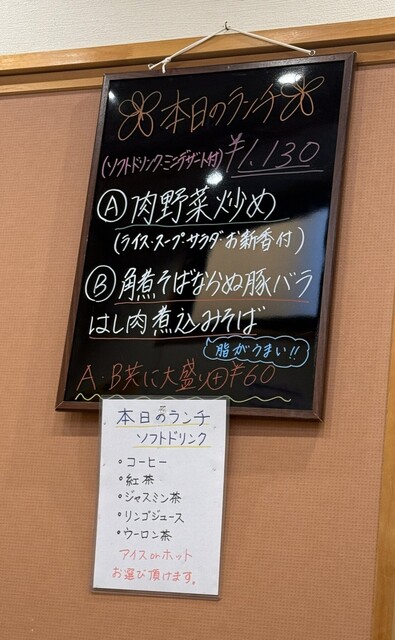 本日のランチ
(ソフトドリンク・ミニデザート付) ¥1,130
Ⓐ 肉野菜炒め
(ライス・スープ・サラダ・お新香付)
Ⓑ 角煮そばならぬ豚バラ
はし肉煮込みそば
脂がうまい!!
A・B共に大盛り⊕¥60
本日のランチ
ソフトドリンク
・コーヒー
・紅茶
・ジャスミン茶
・リンゴジュース
・ウーロン茶
アイスorホット
お選び頂けます。